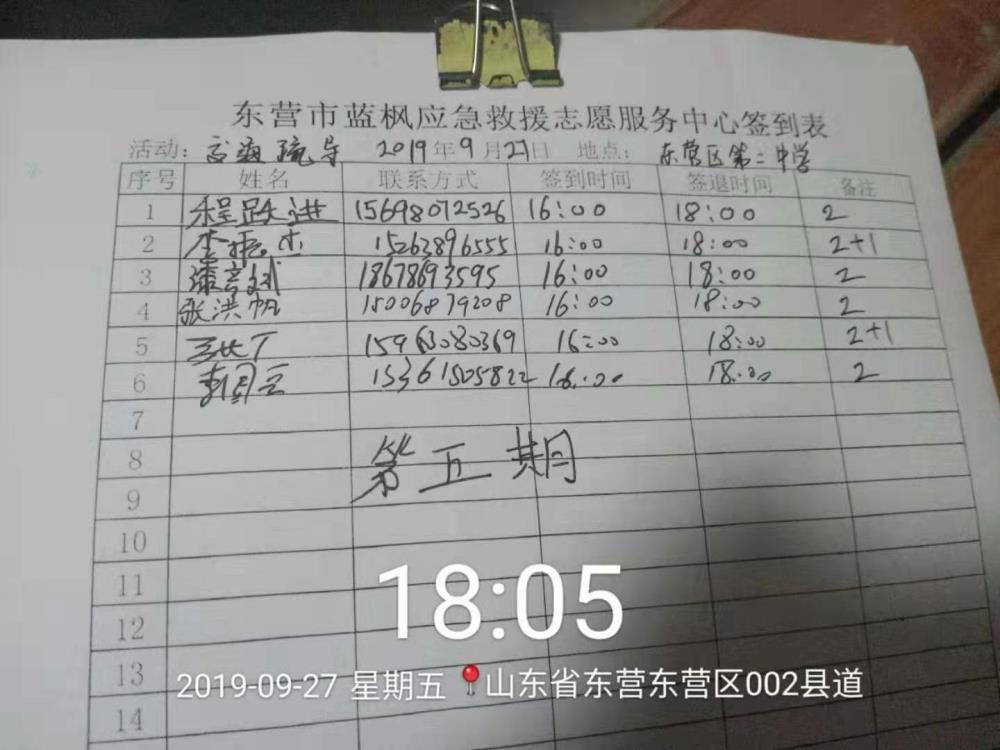 东营市蓝枫应急救援志愿服务中心签到表
活动: 交通疏导 2019年9月27日 地点: 东营区第二中学
序号 姓名 联系方式 签到时间 签退时间 备注
1 程跃进 15698072526 16:00 18:00 2
2 李振杰 15263896555 16:00 18:00 2+1
3 18678693595 16:00 18:00 2
4 张洪帆 15006879208 16:00 18:00 2
5 15963080369 16:00 18:00 2+1
6 15361505822 16:00 18:00 2
7
8
9
第五期
10
11
12
13
14
18:05
2019-09-27 星期五 山东省东营东营区002县道